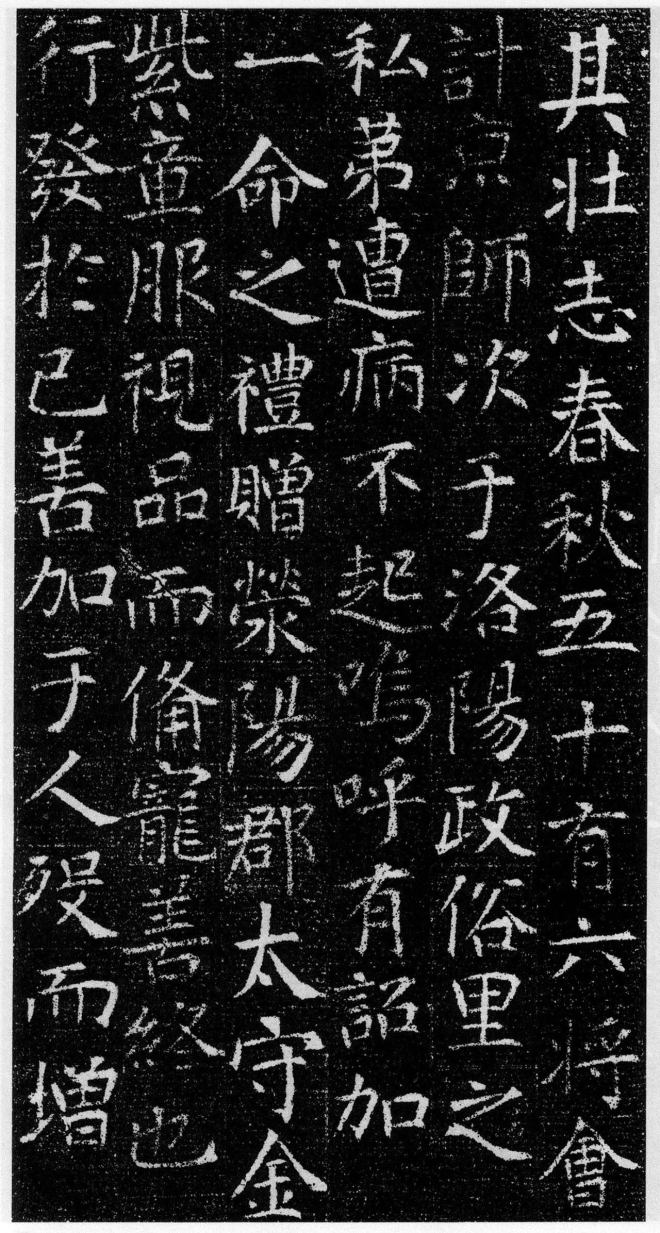 其壯志春秋五十有六將會
計京師次于洛陽政俗里之
私第遭病不起嗚呼有詔加
一命之禮贈滎陽郡太守金
紫童服視品而備寵善終也
行發於己善加于人歿而增